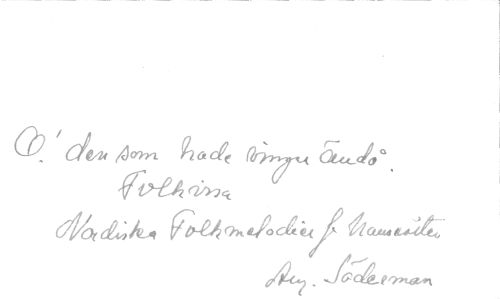 O! den som hade vingar ändå.
Folkvisa
Nordiska Folkmelodier f. Mansröster
Aug. Söderman